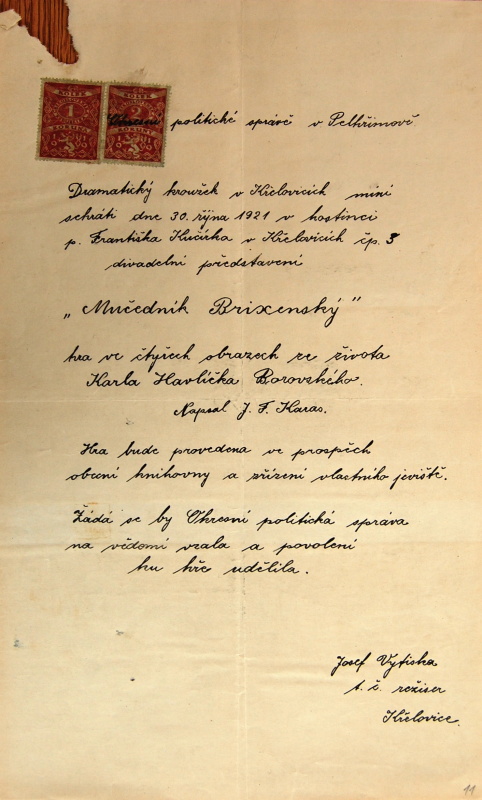 Okresní politické správě v Pelhřimově.
Dramatický kroužek v Křelovicích míní
sehráti dne 30. října 1921 v hostinci
p. Františka Kučírka v Křelovicích čp. 3
divadelní představení
„Mučedník Brixenský"
hra ve čtyřech obrazech ze života
Karla Havlíčka Borovského.
Napsal J. F. Karas.
Hra bude provedena ve prospěch
obecní knihovny a zřízení vlastního jeviště.
Žádá se by Okresní politická správa
na vědomí vzala a povolení
ku hře udělila.
Josef Vytiska
t. č. režiser
Křelovice.
11